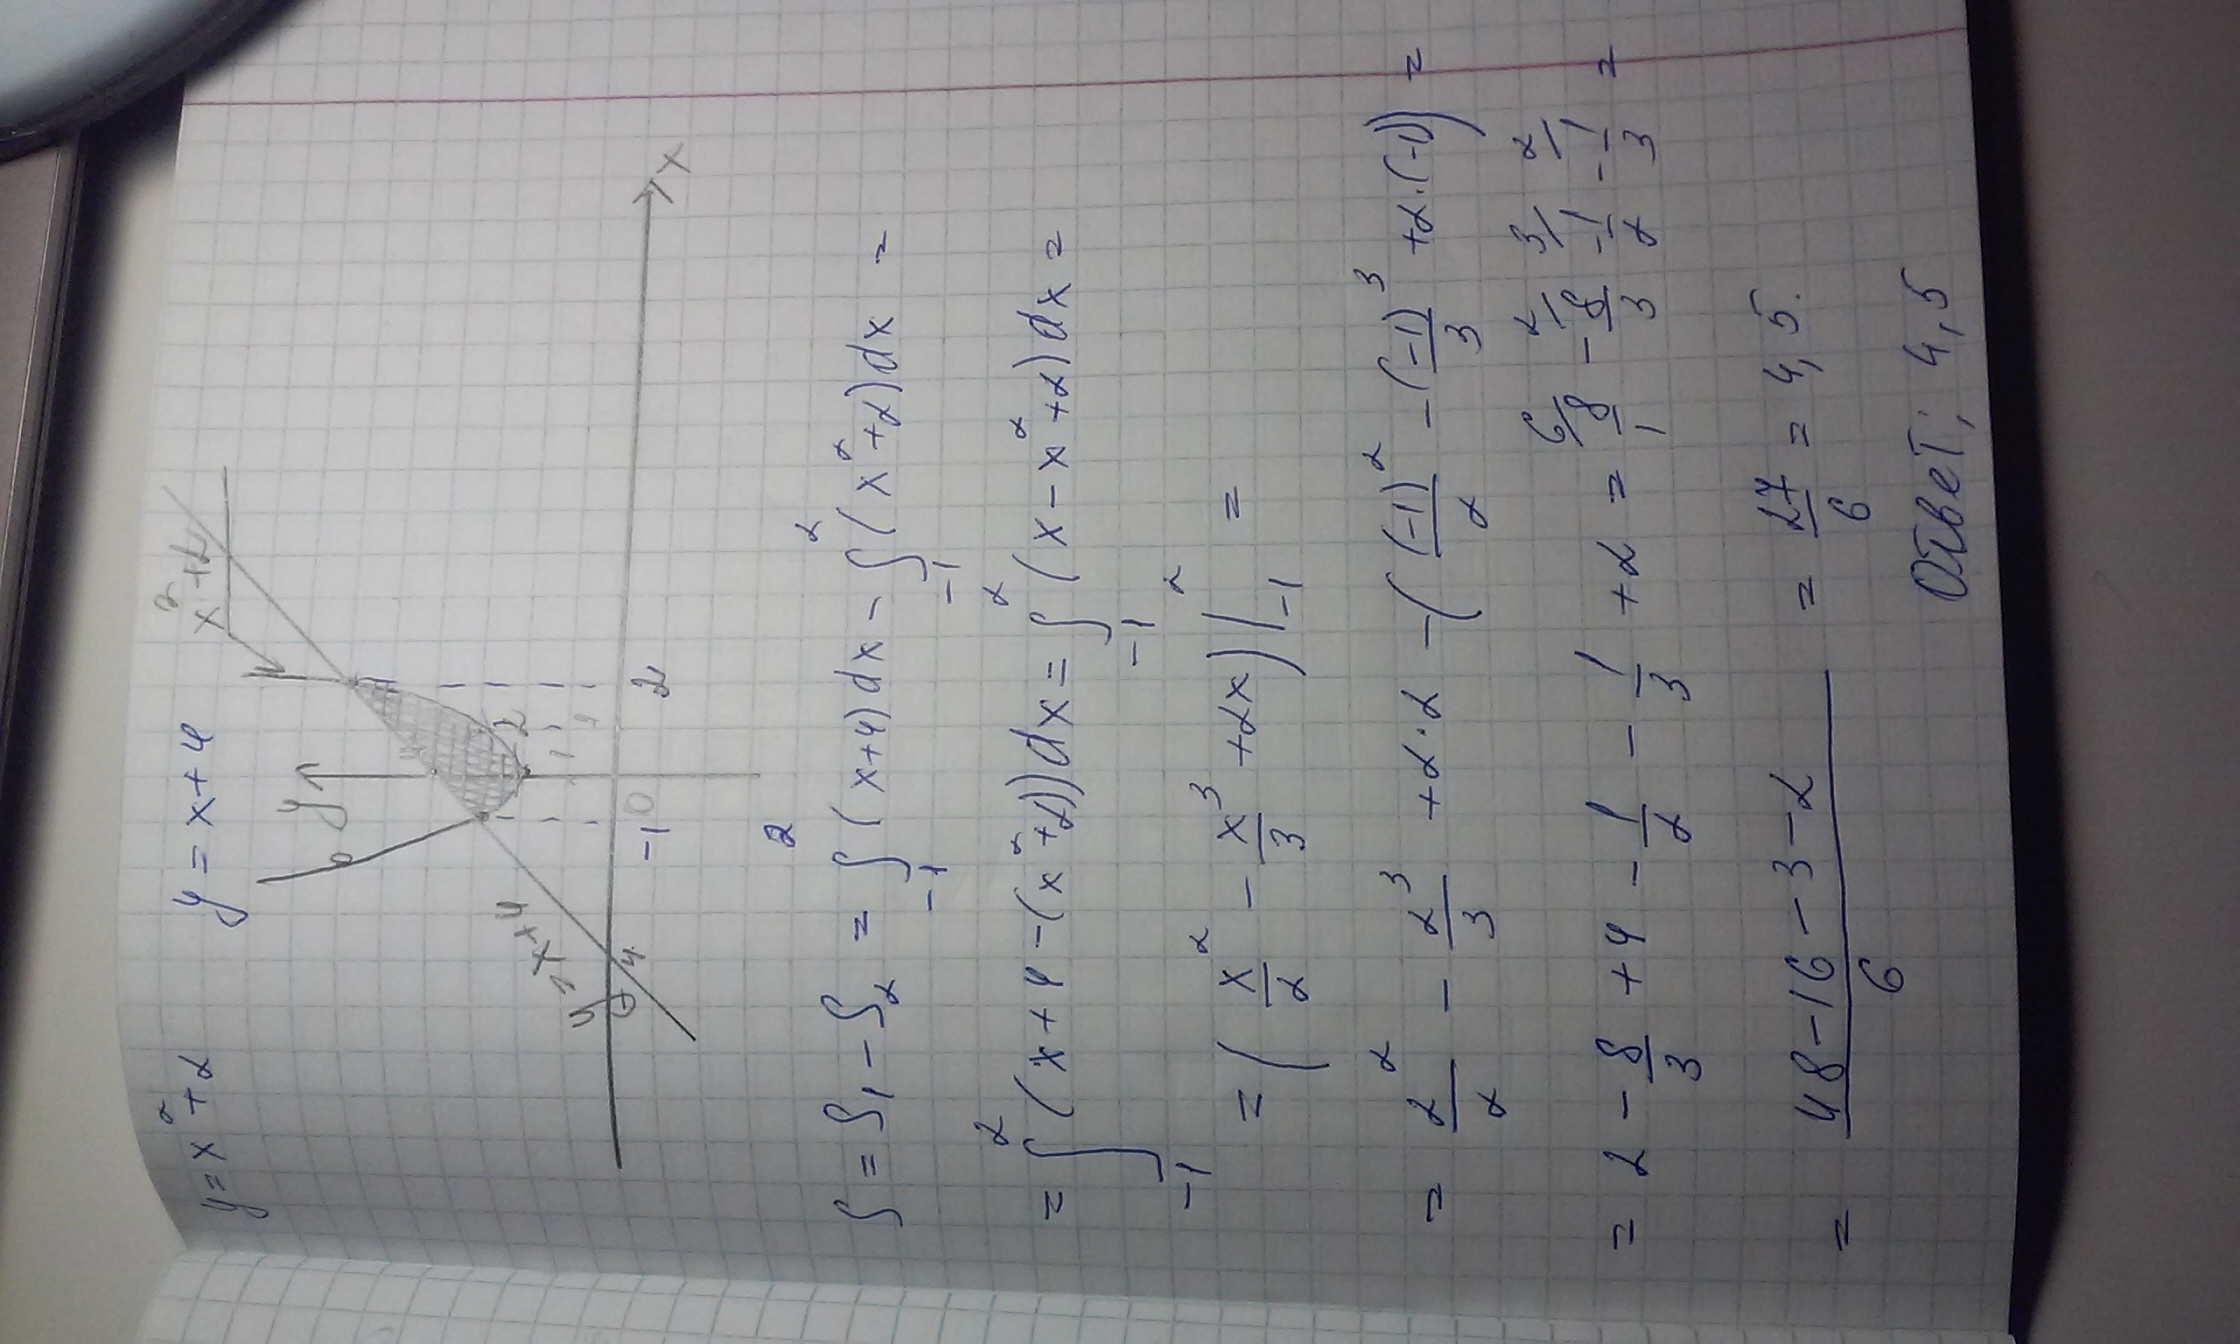 y = x² + 2   y = x + 4
x² + 2
y
y = x + 4
4
2
-4 -1 0 2 x
S = S₁ - S₂ = ∫₋₁² (x+4)dx - ∫₋₁² (x²+2)dx =
= ∫₋₁² (x+4-(x²+2))dx = ∫₋₁² (x-x²+2)dx =
= (x²/2 - x³/3 + 2x)|₋₁² =
= 2²/2 - 2³/3 + 2·2 - ((-1)²/2 - (-1)³/3 + 2·(-1)) =
= 2 - 8/3 + 4 - 1/2 - 1/3 + 2 = ⁶⁾8/1 - ²⁾8/3 - ³⁾1/2 - ²⁾1/3 =
= (48-16-3-2)/6 = 27/6 = 4,5.
Ответ: 4,5